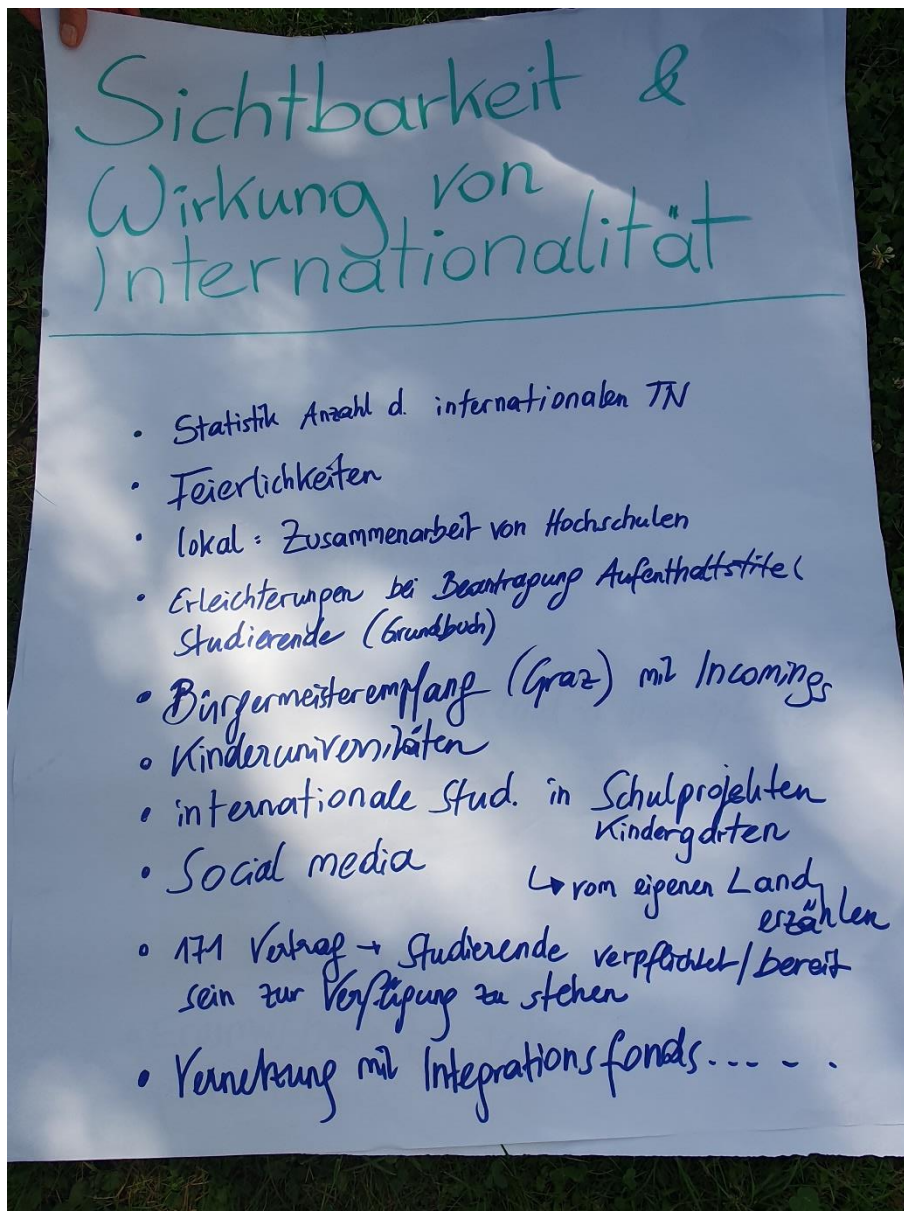 Sichtbarkeit &
Wirkung von
Internationalität
• Statistik Anzahl d. internationalen TN
• Feierlichkeiten
• lokal: Zusammenarbeit von Hochschulen
• Erleichterungen bei Beantragung Aufenthaltstitel
Studierende (Grundbuch)
• Bürgermeisterempfang (Graz) mit Incomings
• Kinderuniversitäten
• internationale Stud. in Schulprojekten
Kindergärten
• Social media
↳ vom eigenen Land
erzählen
• 171 Vertrag → Studierende verpflichtet/bereit
sein zur Verfügung zu stehen
• Vernetzung mit Integrationsfonds.....